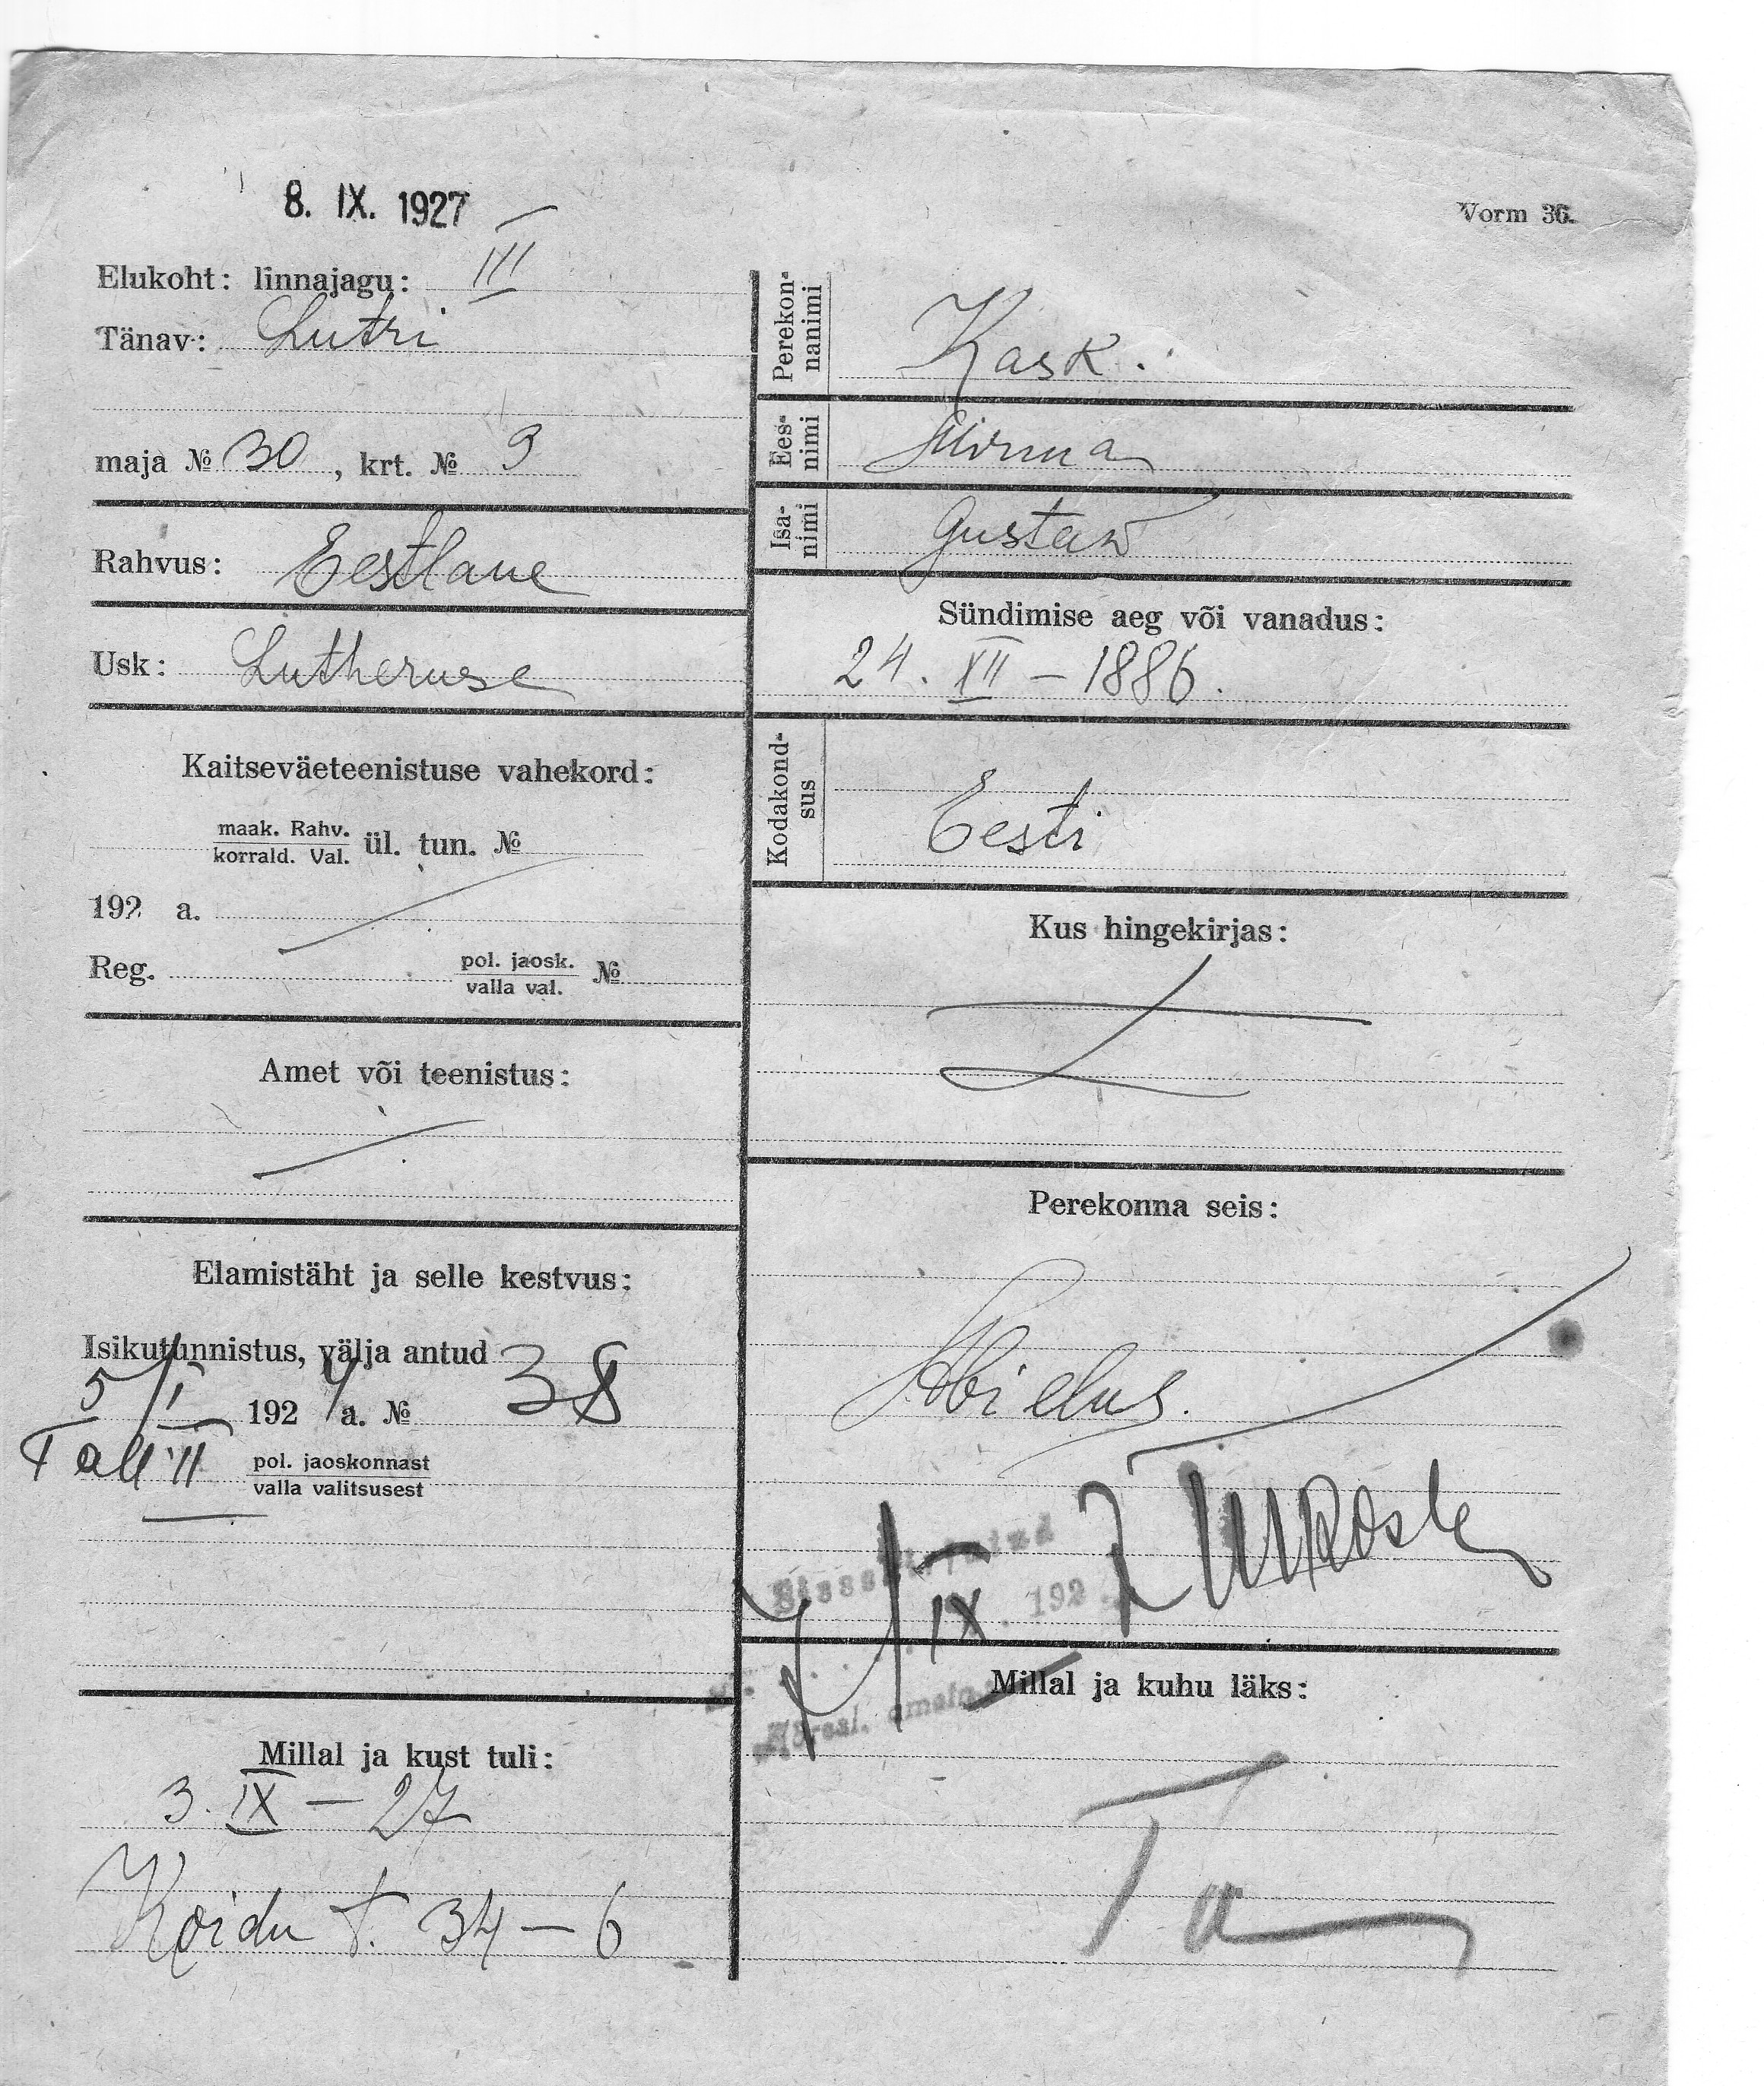 8. IX. 1927
Vorm 36.
Elukoht: linnajagu: III
Tänav: Lutri
maja № 30, krt. № 9
Rahvus: Eestlane
Usk: Lutheruse
Kaitseväeteenistuse vahekord:
maak. Rahv.
korrald. Val. ül. tun. №
192 a.
Reg. pol. jaosk. №
valla val.
Amet või teenistus:
Elamistäht ja selle kestvus:
Isikutunnistus, välja antud
5/I 1924 a. № 38
Tall. II pol. jaoskonnast
valla valitsusest
Millal ja kust tuli:
3. IX – 27
Koidu t. 34 – 6
Perekonnanimi Kask.
Eesnimi
Isanimi Gustaw
Sündimise aeg või vanadus:
24. XII – 1886.
Kodakondsus
Eesti
Kus hingekirjas:
Perekonna seis:
Abielus.
Sissekirjutud
IX 192
Millal ja kuhu läks: